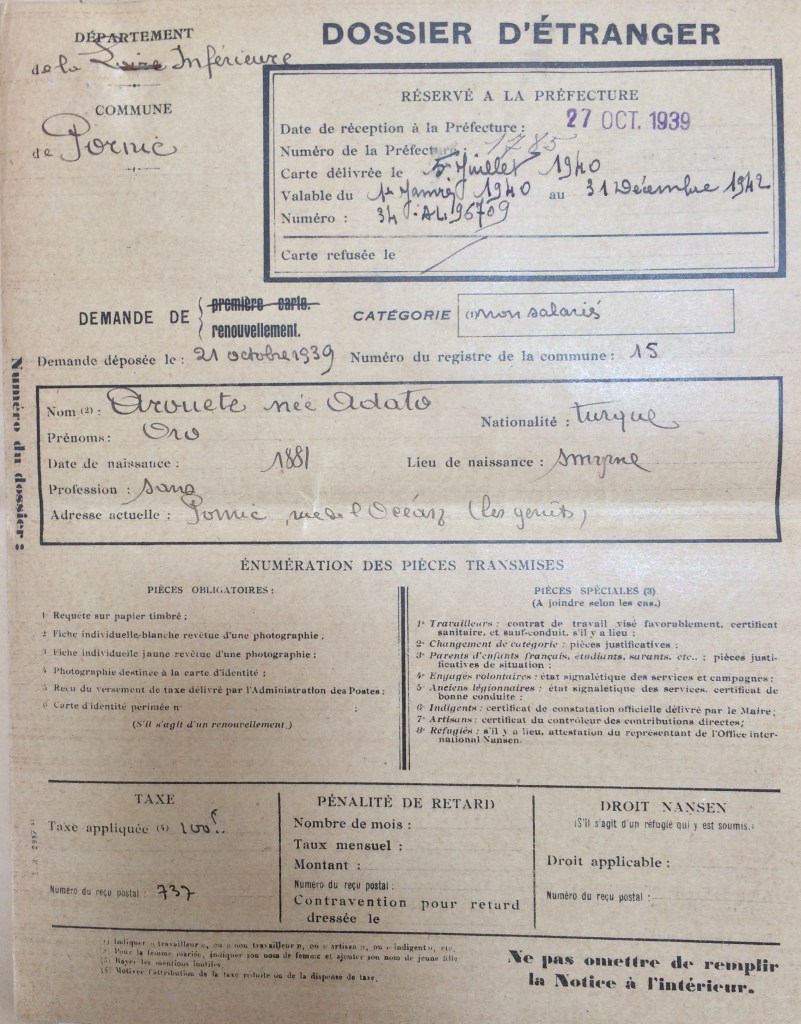 DOSSIER D'ÉTRANGER
DÉPARTEMENT
de la Loire Inférieure
COMMUNE
de Pornic
RÉSERVÉ A LA PRÉFECTURE
Date de réception à la Préfecture : 27 OCT. 1939
Numéro de la Préfecture : 1785
Carte délivrée le 5 Juillet 1940
Valable du 1er 1940 au 31 Décembre 1942
Numéro : 34 - AL 96709
Carte refusée le
DEMANDE DE première carte.
renouvellement.
CATÉGORIE (1) non salariés
Demande déposée le : 21 octobre 1939 Numéro du registre de la commune : 15
Numéro du dossier :
Nom (2) : Arouete née Adato
Nationalité : turque
Prénoms : Oro
Date de naissance : 1881 Lieu de naissance : Smyrne
Profession : sans
Adresse actuelle : Pornic, rue de l'Océan (les genêts)
ÉNUMÉRATION DES PIÈCES TRANSMISES
PIÈCES OBLIGATOIRES :
1 Requête sur papier timbré ;
2 Fiche individuelle blanche revêtue d'une photographie ;
3 Fiche individuelle jaune revêtue d'une photographie ;
4 Photographie destinée à la carte d'identité ;
5 Reçu du versement de taxe délivré par l'Administration des Postes ;
6 Carte d'identité périmée n° ;
(S'il s'agit d'un renouvellement.)
PIÈCES SPÉCIALES (3)
(A joindre selon les cas.)
1° Travailleurs : contrat de travail visé favorablement, certificat
sanitaire, et sauf-conduit, s'il y a lieu ;
2° Changement de catégorie : pièces justificatives ;
3° Parents d'enfants français, étudiants, savants, etc.. ; pièces justi-
ficatives de situation ;
4° Engagés volontaires : état signalétique des services et campagnes ;
5° Anciens légionnaires : état signalétique des services, certificat de
bonne conduite ;
6° Indigents : certificat de constatation officielle délivré par le Maire ;
7° Artisans : certificat du contrôleur des contributions directes ;
8° Réfugiés : s'il y a lieu, attestation du représentant de l'Office inter-
national Nansen.
TAXE
Taxe appliquée (4) 100f
Numéro du reçu postal : 737
PÉNALITÉ DE RETARD
Nombre de mois :
Taux mensuel :
Montant :
Numéro du reçu postal :
Contravention pour retard
dressée le
DROIT NANSEN
(S'il s'agit d'un réfugié qui y est soumis.)
Droit applicable :
Numéro du reçu postal :
(1) Indiquer « travailleur », ou « non travailleur », ou « artisan », ou « indigent », etc.
(2) Pour la femme mariée, indiquer son nom de femme et ajouter son nom de jeune fille
(3) Rayer les mentions inutiles.
(4) Motiver l'attribution de la taxe réduite ou de la dispense de taxe.
Ne pas omettre de remplir
la Notice à l'intérieur.